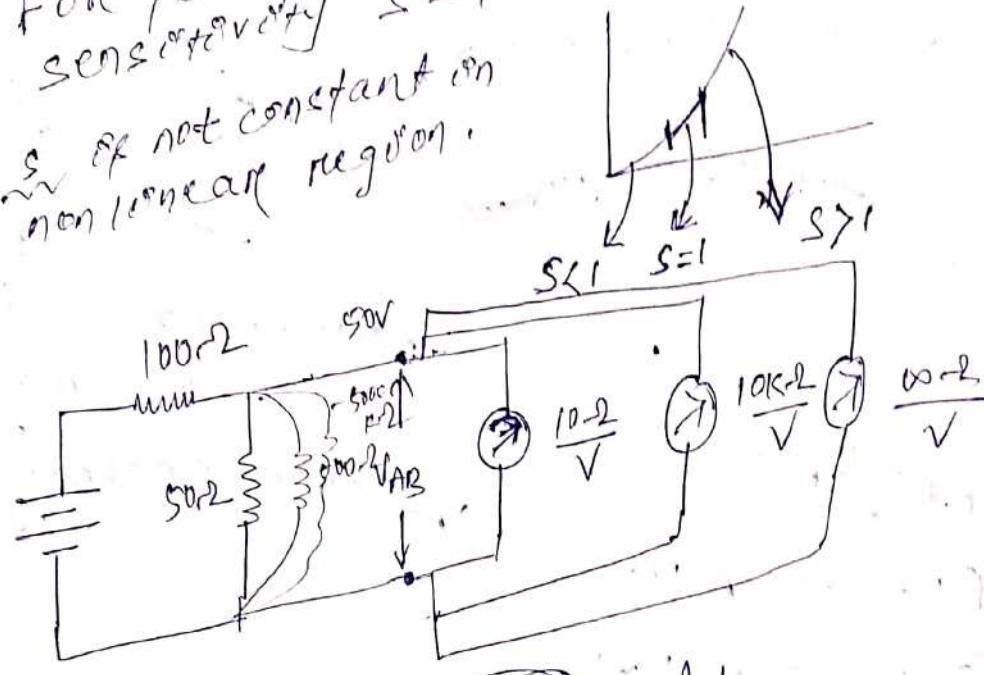 sensitivity S
S is not constant in
non linear region.
S<1
S=1
S>1
50V
100Ω
50Ω
V_AB
10Ω/V
10KΩ/V
∞Ω/V